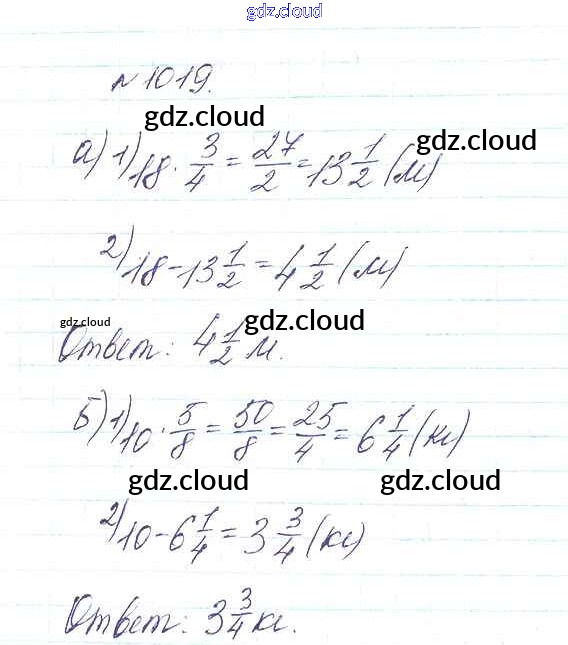 gdz.cloud
№ 1019.
gdz.cloud
а) 1) 18 · 3/4 = 27/2 = 13 1/2 (м)
2) 18 - 13 1/2 = 4 1/2 (м)
gdz.cloud gdz.cloud
Ответ: 4 1/2 м.
Б) 1) 10 · 5/8 = 50/8 = 25/4 = 6 1/4 (кг)
gdz.cloud gdz.cloud
2) 10 - 6 1/4 = 3 3/4 (кг)
gdz.cloud
Ответ: 3 3/4 кг.